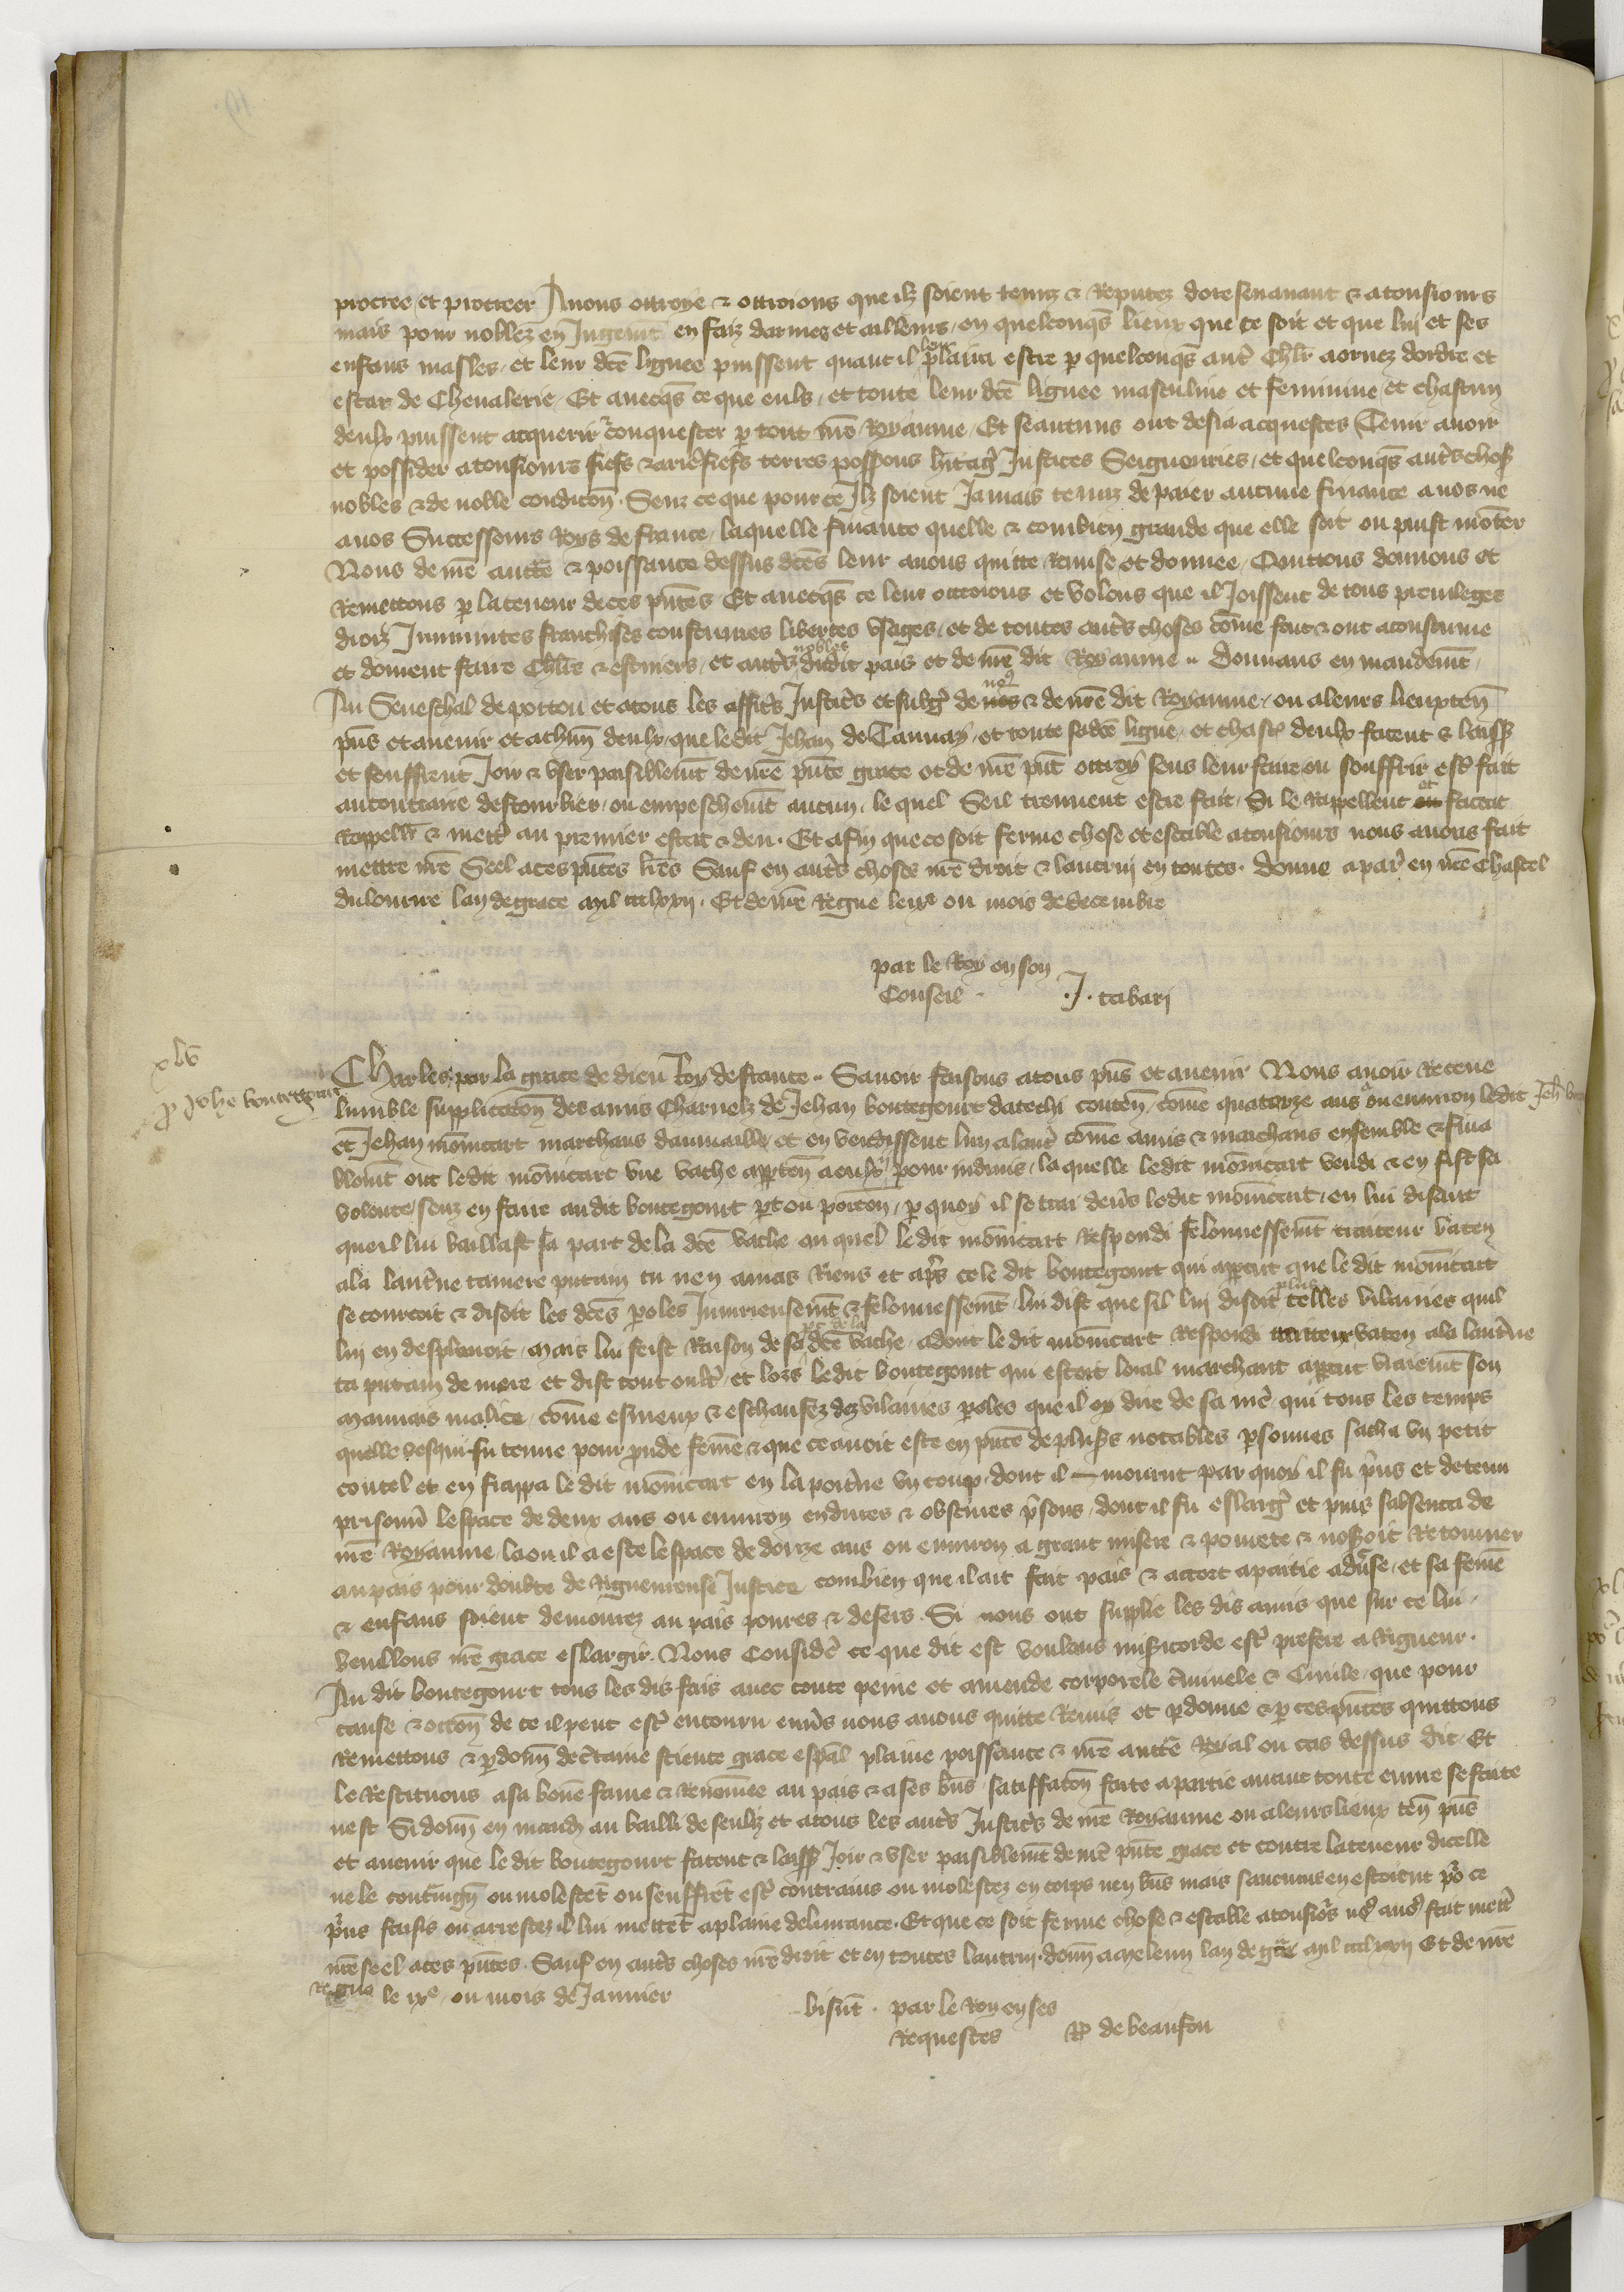 procree et procreer Avons ottroye & ottroions que ilz soient tenuz & Reputez doresenavant & atousiours
mais pour noblez en Jugemt en faiz darmes et ailleurs en quelconqs lieux que ce soit et que lui et ses
enfans masles et leur dce lignee puissent quant il leur plaira estre p quelconqs autr Chlr aornez dordre et
estat de Chevalerie Et avecqs ce que eulx et toute leur dce lignee masculine et feminine et chascun
deulx puissent acquerir conquester p tout nre Royaume Et se aucuns ont desia acquestes Tenir avoir
et possider atousiours fiefs & arrefiefs terres possons hitag Justices Seigneuries et quelconqs autrs chos
nobles & de noble condicon Senz ce que pour ce Ilz soient Jamais tenuz de paier aucune finance a nos ne
a nos Successeurs Roys de france laquelle finance quelle & combien grande que elle soit ou puist monter
Nous de nre auctte & poissance dessus dces leur avons quitte Remise et donnee Quittons donnons et
Remettons p la teneur de ces pntes Et avecqs ce leur ottroions et volons que il Joissent de tous privileges
droiz Immunites franchises coustumes libertes usages et de toutes autrs choses come font & ont acoustume
et doivent faire Chlrs & escuiers et autrs nobles dudit pais et de nre dit Royaume Donnans en mandemt
Au Seneschal de poitou et atous les autrs Justicrs et subgz de nos & de nre dit Royaume ou a leurs lieuxten
pns et avenir et achun deulx que ledit Jehan de Taunay et toute sadce ligne et chasc deulx facent & laiss
et seuffrent Joir & user paisiblemt de nre pnte grace et de nre pnt ottroy sens leur faire ou souffrir est fait
au contraire destourbier ou empeschemt aucun le quel Seil treuvent estre fait Si le Rappellent et facent
Rappellr & mettr au premier estat & deu Et afin que ce soit ferme chose et estable atousiours nous avons fait
mettre nre Seel a ces pntes lres Sauf en autrs choses nre droit & lautrui en toutes Donne a par en nre Chastel
du louvre lan de grace mil ccclxxij Et de nre Regne le ixe ou mois de decembre
par le Roy en son
Conseil
J. tabari
xlv
p Johe boutegourt
Charles par la grace de dieu Roy de france Savoir faisons atous pns et avenir Nous avoir Receue
lumble supplicacon des amis Charnelz de Jehan boutegourt datechi conten come quatorze ans a ou environ ledit Jeh bout
et Jehan monicart marchans daumaille et en vendissent lun alautr come amis & marchans ensemble & fina
blemt ont ledit monicart une vache apparten a eulx pour indivis la quelle ledit monicart vendi & en fist sa
volente senz en faire audit boutegourt pt ou porcon p quoy il se trai devs ledit monicart en lui disant
que il lui baillast sa part de la dce vache au quel ledit monicart Respondi felonnessemt traiteur vaten
ala lantrne ta mere putain tu nen auras Riens et aprs ce le dit boutegourt qui appercut que le dit monicart
se courcoit & disoit les dces poles Iniurieusemt & felonnessemt lui dist que sil lui disoit plus telles vilanies quil
lui en desplairoit mais lui feist Raison de sa pt de la dce vache adont le dit monicart Respondi traiteur vaten ala lantrne
ta putain de mere et dist tout oultr et lors ledit boutegourt qui estoit loial marchant appercut vraiemt son
mauvais malice come esmeux & eschaufez des vilaines poles que il oy dire de sa mere qui tous les temps
quelle vesqui fu tenue pour pude femme & que ce avoit este en pnce de pluss notables psonnes sacha un petit
coutel et en frappa le dit monicart en la poitrne un coup dont il mourut par quoy il fu prins et detenu
prisonnr lespace de deux ans ou environ en dures & obscures prisons dont il fu eslargi et puis sabsenta de
nre Royaume la ou il a este lespace de douze ans ou environ a grant misere & povrete & nosoit Retourner
au pais pour doubte de Riguereuse Justice combien que il ait fait pais & accort a partie advrse et sa femme
& enfans soient demourez au pais povres & desers Si nous ont supplie les dis amis que sur ce lui
veullons nre grace eslargir Nous Considere ce que dit est voulans misericorde estr preferee a Rigueur
Au dit boutegourt tous les dis fais avec toute peine et amende corporele criminele & Civile que pour
cause & occon de ce il peut estr encouru envs nous avons quitte Remis et pdonne & p ces pntes quittons
Remettons & pdonn de ctaine science grace espal plaine poissance & nre auctte Royal ou cas dessus dit Et
le Restituons a sa bone fame & Renomee au pais & a ses bns satiffacon faite a partie avant toute euvre se faite
nest Si donn en mandt au bailli de senliz et atous les autrs Justicrs de nre Royaume ou a leurs lieux ten pns
et avenir que le dit boutegourt facent & laiss Joir & user paisiblemt de nre pnte grace et contre la teneur dicelle
ne le contraingn ou molestet ou seuffret estr contrains ou molestez en corps nen bns mais saucuns en estoient por ce
prins saisis ou arrestez il lui mettet a plaine delivrance Et que ce soit ferme chose & estable atousiors ns avs fait mettr
nre seel a ces pntes Sauf en autrs choses nre droit et en toutes lautrui donn a meleun lan de grace mil ccclxxij Et de nre
Regne le ixe ou mois de Janvier
visut par le Roy en ses
Requestes
P de beaufou